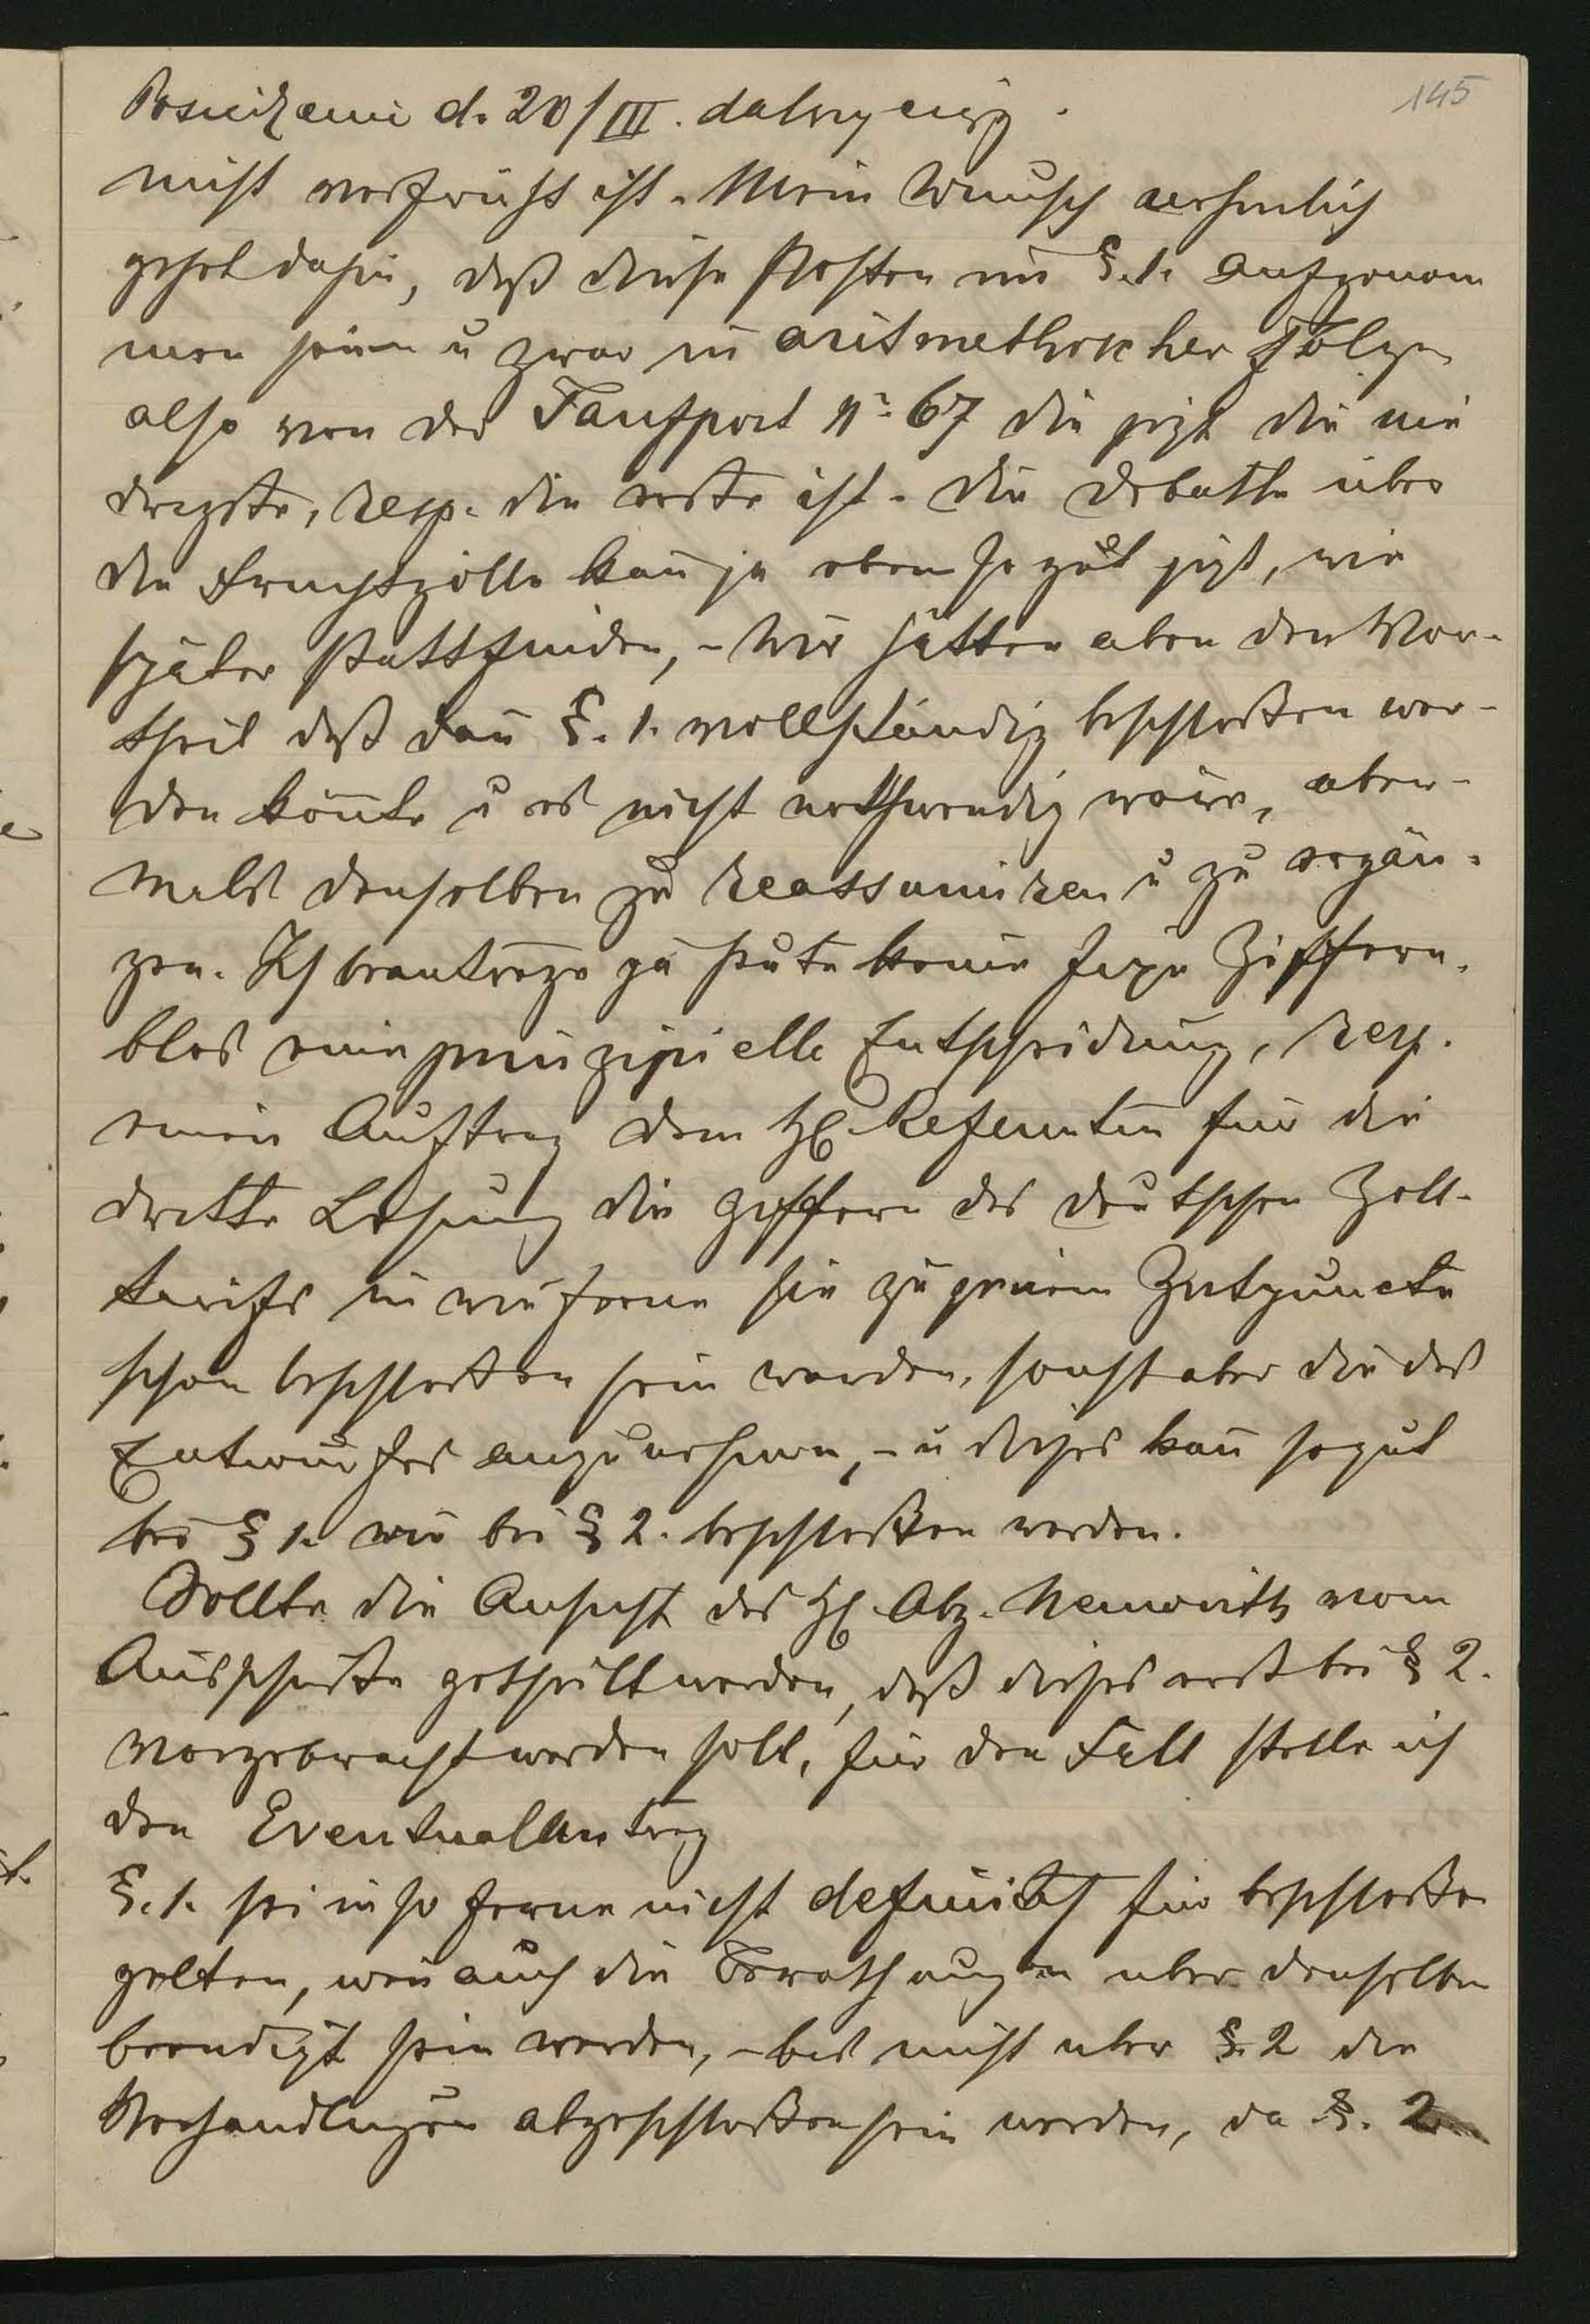 145
Posiedzenie d. 20/III. dalszy ciąg.
nicht verfrüht ist. Mein Wunsch nehmlich
gehet dahin, daß diese Posten in §.1. aufgenom
men seien u zwar in aritmethischer Folge,
also von der Tarifpost No 67 die jezt die nie
drigste, resp. die erste ist. Die Debatte über
die Fruchtzölle kan̄ ja eben so gut jezt, wie
später stattfinden, – Wir hätten aben den Vor-
theil daß dan̄ §.1. vollständig beschloßen wer-
den kön̄te u es nicht nothwendig wäre, aber-
mals denselben zu reassumiren u zu ergän-
zen. Ich beantrage ja heute keine fixe Ziffern.
blos eine prinzipielle Entscheidung, resp.
einen Auftrag dem H Referenten für die
dritte Lesung die Ziffern des deutschen Zoll-
tarifs in wie ferne sie zu jenem Zeitpuncte
schon beschloßen sein werden, sonst aber die des
Entwurfes anzunehmen, – u dieses kan̄ sogut
bei § 1. wie bei § 2. beschloßen werden.
Sollte die Ansicht des H Abg. Menwirth vom
Ausschuße getheilt werden, daß dieses erst bei § 2.
vorgebracht werden soll, für den Fall stelle ich
den Eventualantrag
§.1. sei in so ferne nicht definitiv für beschloßen
gelten, wen̄ auch die Berathungen uber denselben
beendigt sein werden, – bis nicht uber §.2 die
Verhandlungen abgeschloßen sein werden, da §. 2